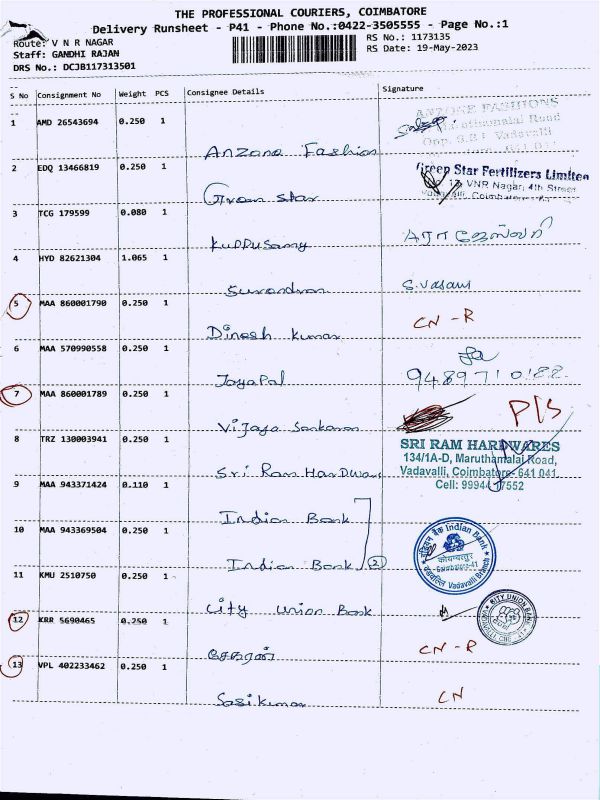 THE PROFESSIONAL COURIERS, COIMBATORE
Delivery Runsheet - P41 - Phone No.:0422-3505555 - Page No.:1
Route: V N R NAGAR
RS No.: 1173135
Staff: GANDHI RAJAN
RS Date: 19-May-2023
DRS No.: DCJB117313501
S No Consignment No Weight PCS Consignee Details Signature
1 AMD 26543694 0.250 1
ANZONE FASHIONS
Maruthamalai Road
Opp. G.B.I Vadavalli
Anzone Fashion
2 EDQ 13466819 0.250 1
Green Star Fertilizers Limited
VNR Nagar, 4th Street
Green Star
3 TCG 179599 0.080 1
Kuppusamy
4 HYD 82621304 1.065 1
Surendran S. Vasavi
5 MAA 860001790 0.250 1
CN - R
Dinesh Kumar
6 MAA 570990558 0.250 1
Jayapal
7 MAA 860001789 0.250 1
P/S
Vijaya Sankaran
8 TRZ 130003941 0.250 1
SRI RAM HARDWARES
134/1A-D, Maruthamalai Road,
Vadavalli, Coimbatore- 641 041.
Sri Ram Hardware
9 MAA 943371424 0.110 1
Indian Bank
10 MAA 943369504 0.250 1
Indian Bank (2)
Indian Bank
Vadavalli Branch
11 KMU 2510750 0.250 1
City Union Bank
CITY UNION BANK
12 KRR 5690465 0.250 1
சேகரன்
CN - R
13 VPL 402233462 0.250 1
Sasikumar
CN